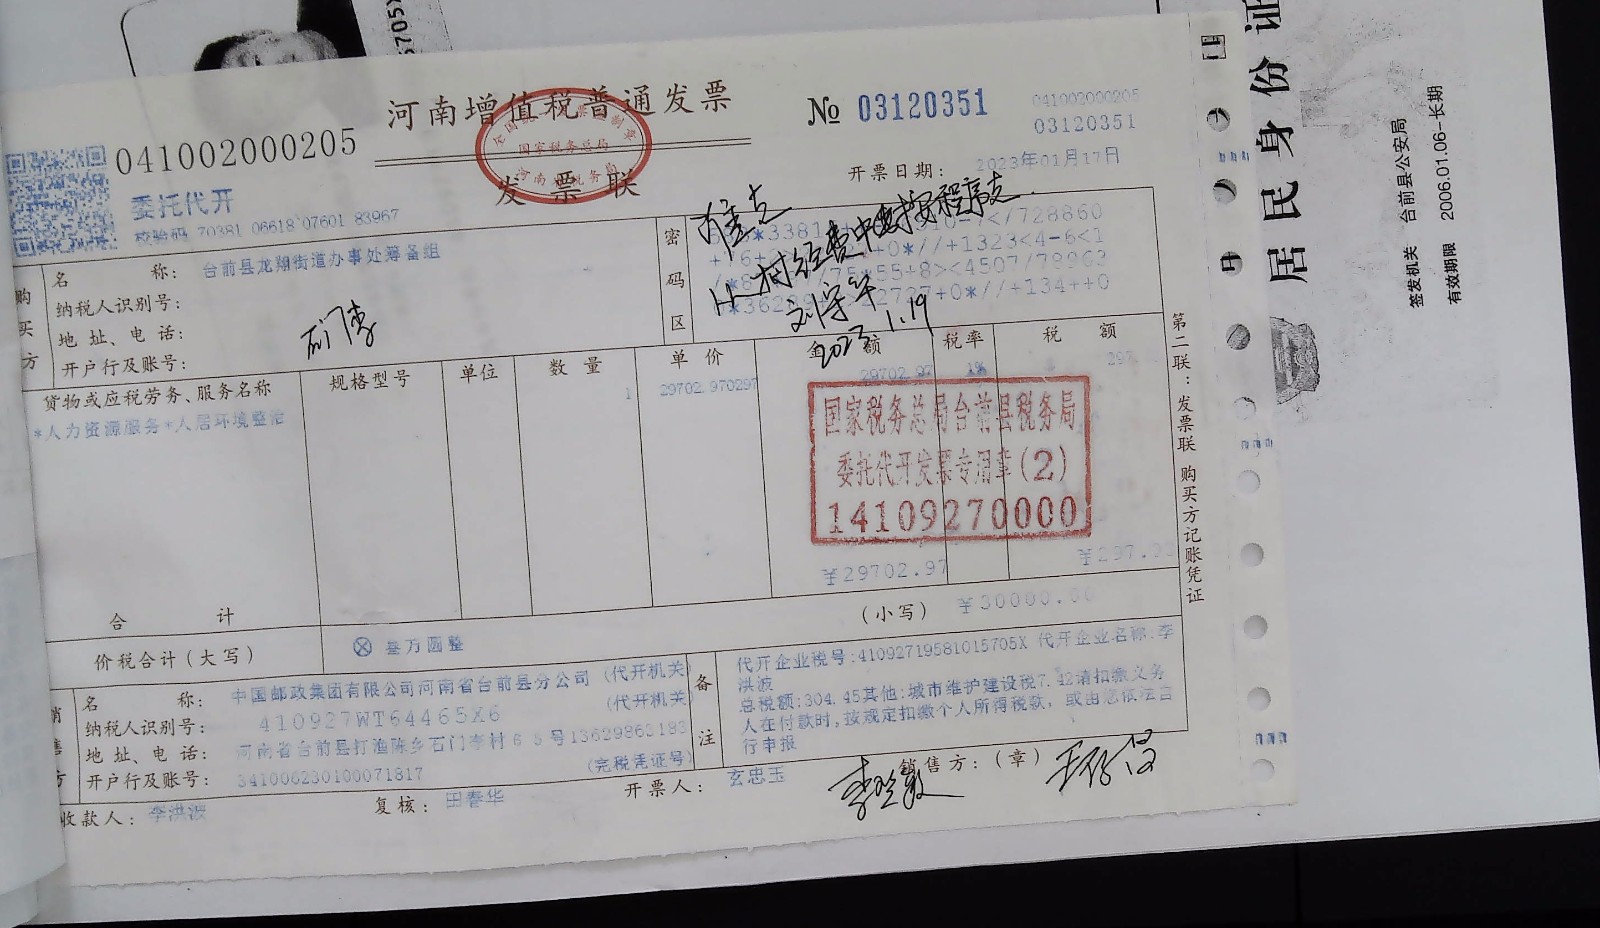 5705X
河南增值税普通发票
发票联
国家税务总局
041002000205
№ 03120351
041002000205
03120351
委托代开
校验码 70381 06618 07601 83967
开票日期: 2023年01月17日
购买方
名称: 台前县龙翔街道办事处筹备组
纳税人识别号:
地址、电话:
开户行及账号:
石门李
密码区
准支
从村经费中按程序支
刘守军
2023.1.19
货物或应税劳务、服务名称 规格型号 单位 数量 单价 金额 税率 税额
*人力资源服务*人居环境整治 1 29702.970297 29702.97 1% 297
国家税务总局台前县税务局
委托代开发票专用章(2)
14109270000
合计 ¥29702.97 ¥297.
价税合计(大写) ⊗ 叁万圆整 (小写) ¥30000.00
销售方
名称: 中国邮政集团有限公司河南省台前县分公司 (代开机关
纳税人识别号: 410927WT64465X6 (代开机关
地址、电话: 河南省台前县打渔陈乡石门李村65号13629863193
开户行及账号: 341006230100071817 (完税凭证号)
备注
代开企业税号:41092719581015705X 代开企业名称:李
洪波
总税额:304.45其他:城市维护建设税7.42请扣缴义务
人在付款时,按规定扣缴个人所得税款,或由您依法自
行申报
收款人: 李洪波 复核: 田春华 开票人: 玄忠玉 销售方:(章)
第二联:发票联 购买方记账凭证
居民身份证
签发机关 台前县公安局
有效期限 2006.01.06-长期